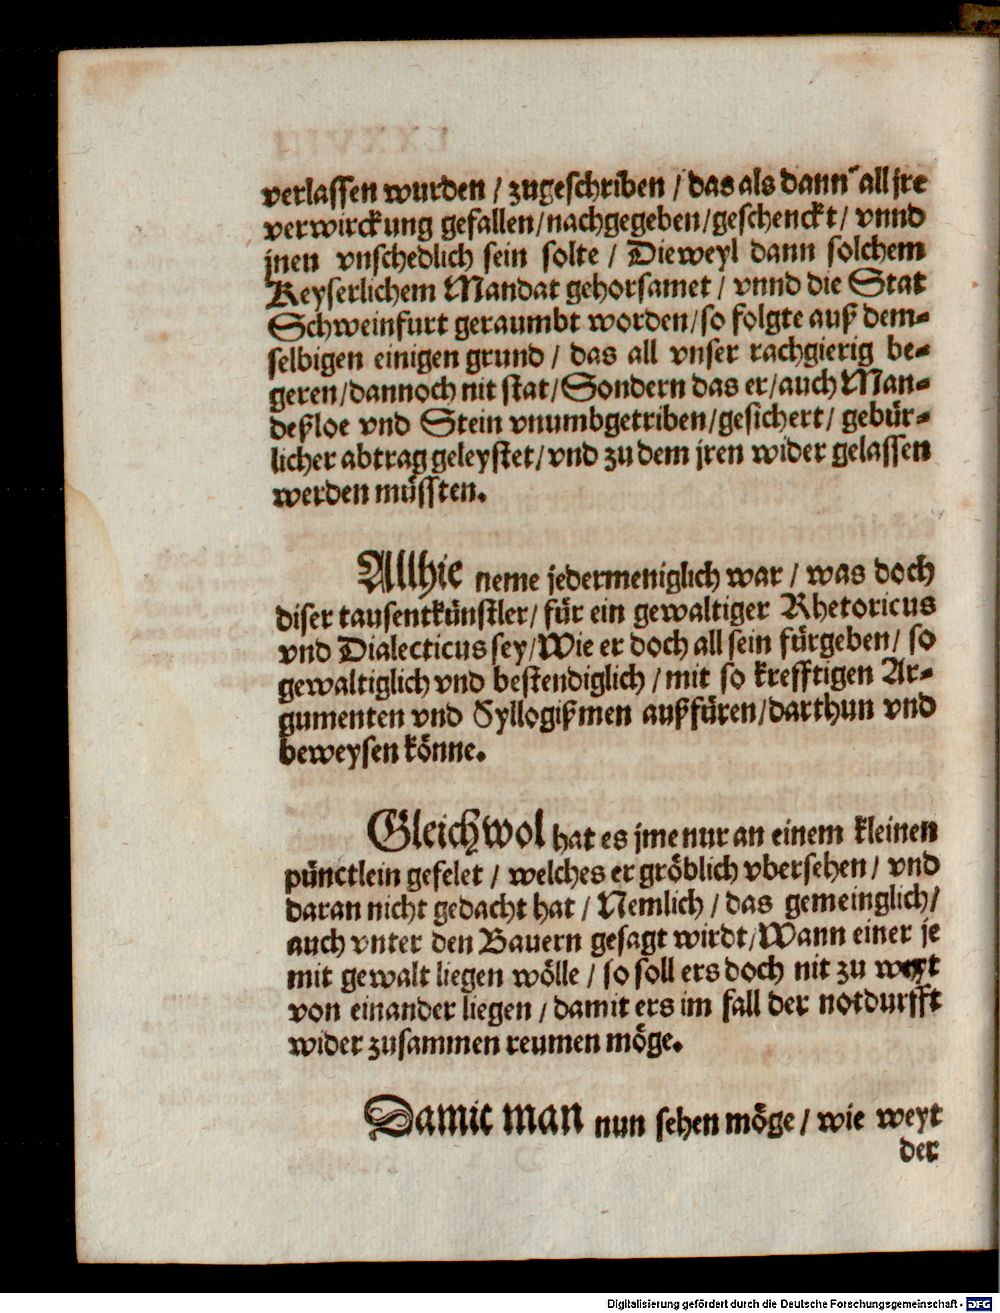 verlassen wurden / zugeschriben / das als dann all jre
verwirckung gefallen/nachgegeben/geschenckt/ vnnd
jnen vnschedlich sein solte / Dieweyl dann solchem
Keyserlichem Mandat gehorsamet / vnnd die Stat
Schweinfurt geraumbt worden/so folgte auß dem⸗
selbigen einigen grund / das all vnser rachgierig be⸗
geren/dannoch nit stat/Sondern das er/auch Man⸗
deßloe vnd Stein vnumbgetriben/gesichert/ gebür⸗
licher abtrag geleystet/vnd zu dem jren wider gelassen
werden müssten.
Allhie neme jedermeniglich war / was doch
diser tausentkünstler/ für ein gewaltiger Rhetoricus
vnd Dialecticus sey/Wie er doch all sein fürgeben/ so
gewaltiglich vnd bestendiglich / mit so krefftigen Ar⸗
gumenten vnd Syllogißmen außfüren/darthun vnd
beweysen könne.
Gleichwol hat es jme nur an einem kleinen
pünctlein gefelet / welches er gröblich vbersehen / vnd
daran nicht gedacht hat / Nemlich / das gemeinglich/
auch vnter den Bauern gesagt wirdt/Wann einer je
mit gewalt liegen wölle / so soll ers doch nit zu weyt
von einander liegen / damit ers im fall der notdurfft
wider zusammen reumen möge.
Damit man nun sehen möge / wie weyt
der
Digitalisierung gefördert durch die Deutsche Forschungsgemeinschaft - DFG